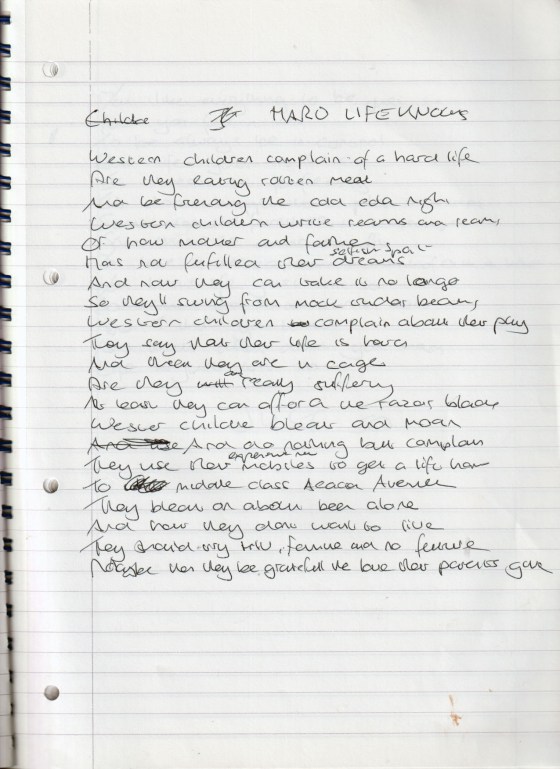 HARD LIFE KNOCKS
Western children complain of a hard life
Are they eating rotten meat
be freezing the cold cold night
Western children write reams and reams
Of how mother and father
selfish
Has not fulfilled their dreams
And now they can take it no longer
So they'll swing from mock beams
Western children complain about their
They say that their life is hard
And then they are in cage
Are they really suffering
At least they can afford the razor blade
Western childre bleat and moan
And do nothing but complain
They use their mobiles to get a life
To middle class Acacia Avenue
They bleat on about been alone
And how they dont want to live
They should try famine and no
Maybe then they be gratefull the love their parents gave